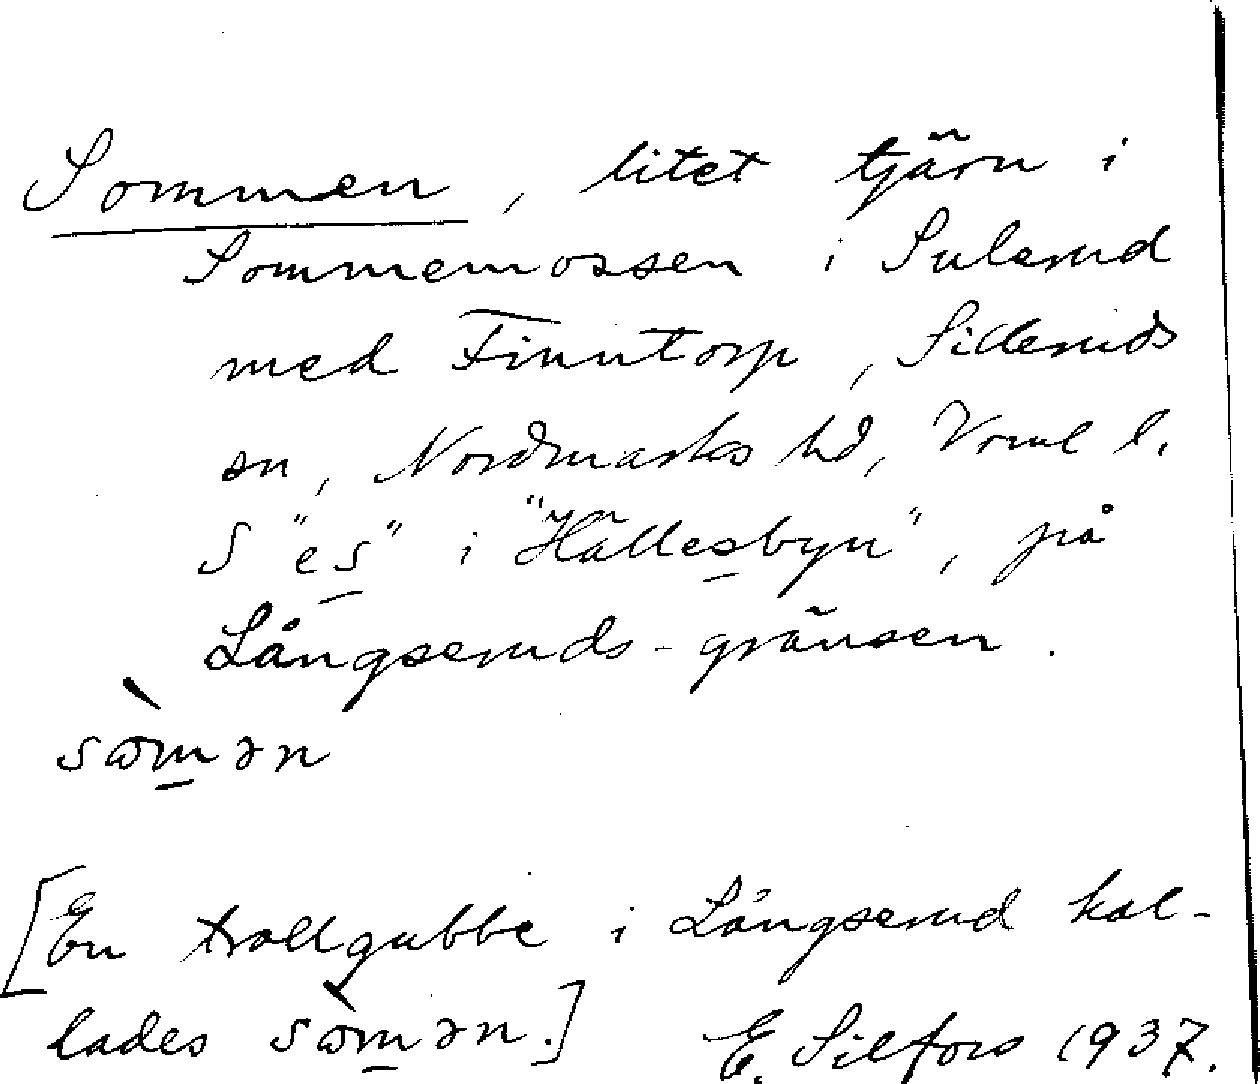 Sommen, litet tjärn i
Sommemossen i Sulerud
med Finntorp, Sileruds
sn, Nordmarks hd, Vrml l.
S "es" i "Hällesbyn", på
Långseruds-gränsen.
sòmən
[En trollgubbe i Långserud kal-
lades sòmən.] E. Silfors 1937.